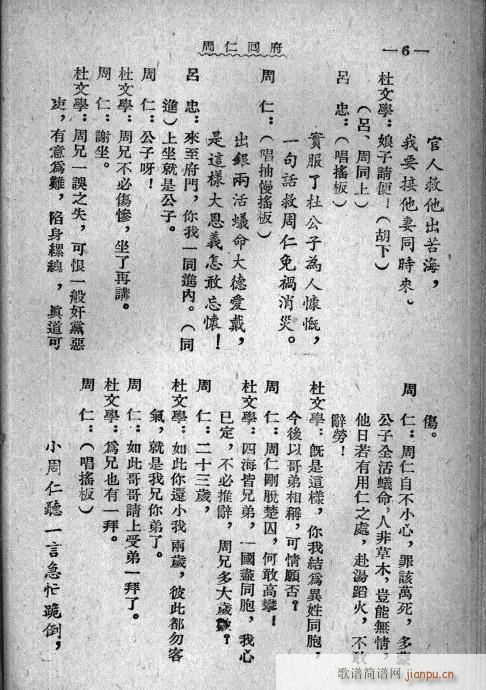 周仁回府
—6—
官人救他出苦海，
我要接他妻同時來。
杜文學：娘子請便！（胡下）
（呂、周同上）
呂　忠：（唱搖板）
實服了杜公子為人慷慨，
一句話救周仁免禍消災。
周　仁：（唱抽慢搖板）
出銀兩活蟻命大德愛戴，
是這樣大恩義怎敢忘懷！
呂　忠：來至府門，你我一同進內。（同
進）上坐就是公子。
周　仁：公子呀！
杜文學：周兄不必傷慘，坐了再講。
周　仁：謝坐。
杜文學：周兄一誤之失，可恨一般奸黨惡
吏，有意爲難，陷身縲絏，眞道可
傷。
周　仁：周仁自不小心，罪該萬死，多蒙
公子全活蟻命，人非草木，豈能無情，
他日若有用仁之處，赴湯蹈火，不
辭勞！
杜文學：旣是這樣，你我結爲異姓同胞，
今後以哥弟相稱，可情願否？
周　仁：周仁剛脫楚囚，何敢高攀！
杜文學：四海皆兄弟，一國盡同胞，我心
已定，不必推辭，周兄多大歲數？
周　仁：二十三歲，
杜文學：如此你還小我兩歲，彼此都勿客
氣，就是我兄你弟了。
周　仁：如此哥哥請上受弟一拜了。
杜文學：爲兄也有一拜。
周　仁：（唱搖板）
小周仁聽一言急忙跪倒，
歌谱简谱网
jianpu.cn